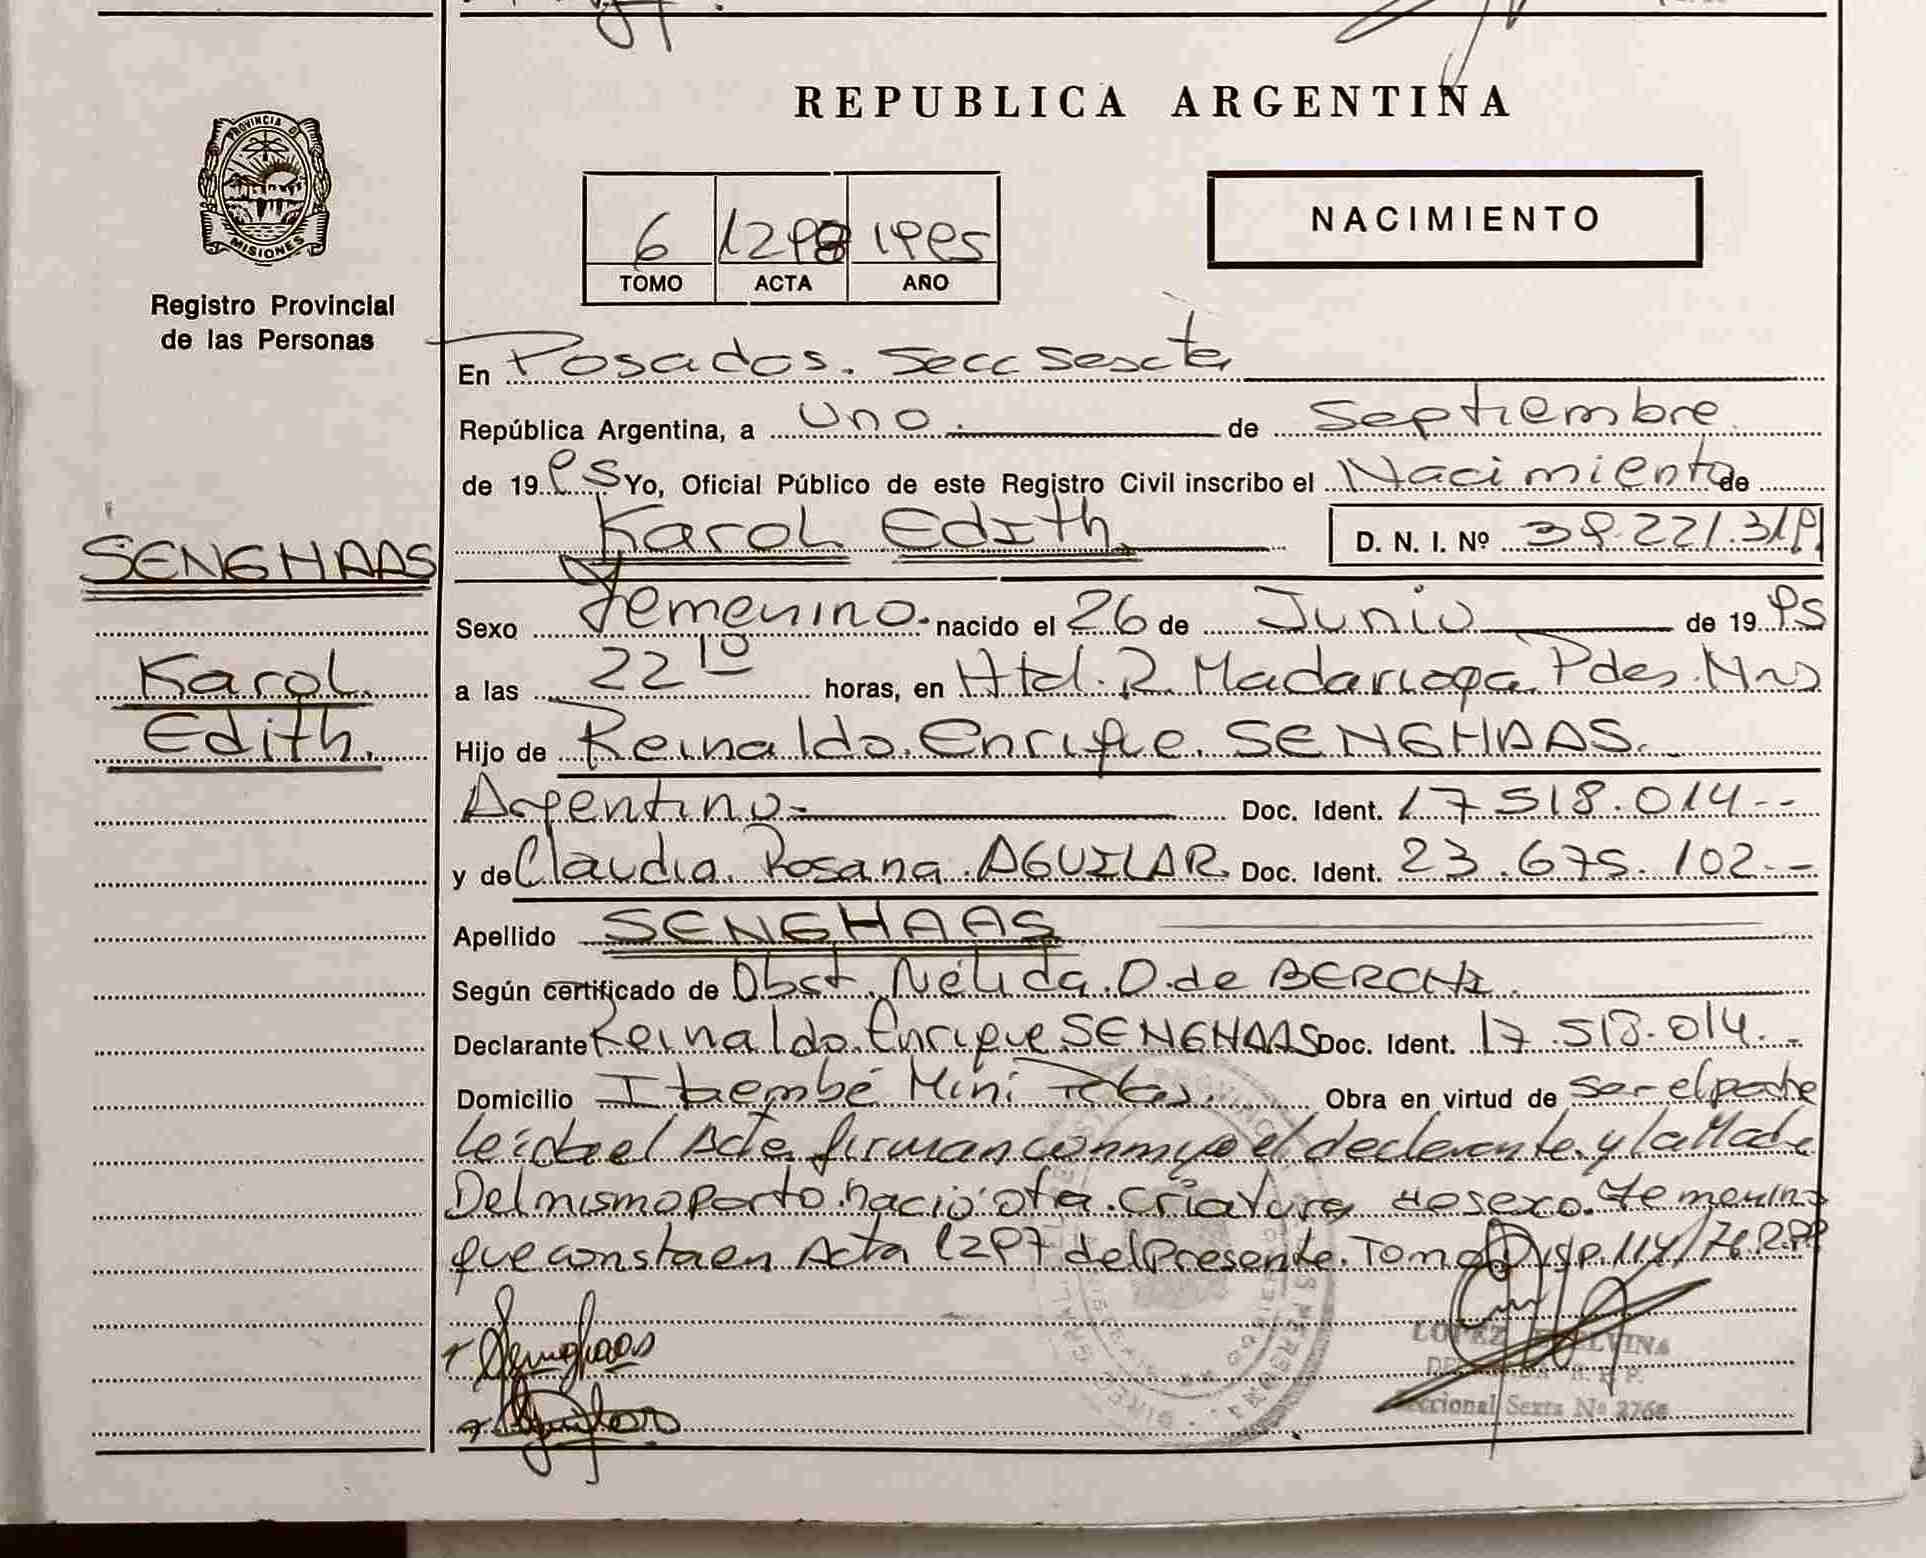 REPUBLICA ARGENTINA
PROVINCIA DE
MISIONES
Registro Provincial
de las Personas
6 1298 1995
TOMO ACTA AÑO
NACIMIENTO
En Posadas. Secc Sescta
República Argentina, a uno. de Septiembre.
de 19 95 Yo, Oficial Público de este Registro Civil inscribo el Nacimiento de
Karol Edith. D. N. I. Nº 39.221.319
SENGHAAS
Karol
Edith.
Sexo Femenino. nacido el 26 de Junio de 19 95
a las 22 10 horas, en Htal. R. Madariaga. Pdas. Mns
Hijo de Reinaldo. Enrique. SENGHAAS.
Argentino.- Doc. Ident. 17.518.014.--
y de Claudia. Rosana. AGUILAR. Doc. Ident. 23.675.102.--
Apellido SENGHAAS
Según certificado de Obst. Nélida. O. de BERCHI.
Declarante Reinaldo. Enrique SENGHAAS Doc. Ident. 17.518.014.-
Domicilio Itaembé Mini Obra en virtud de ser el padre
Leída el Acta, firman conmigo el declarante. y la Madre
Del mismo parto. nació ota. criatura de sexo. Femenino
que consta en Acta 1297 del Presente. Tomo Disp. 114/76 R.P.P
Senghaas
LOPEZ ELVINA
R. P. P.
Seccional Sexta Nº 2764